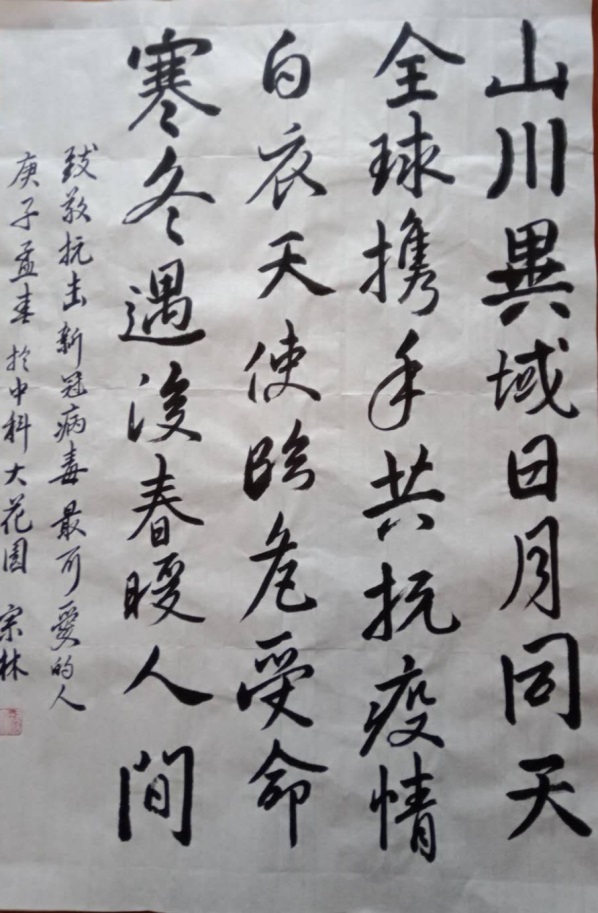 山川異域日月同天
全球携手共抗疫情
白衣天使臨危受命
寒冬遇後春暖人間
致敬抗击新冠病毒最可爱的人
庚子孟春於中科大花園 宗林